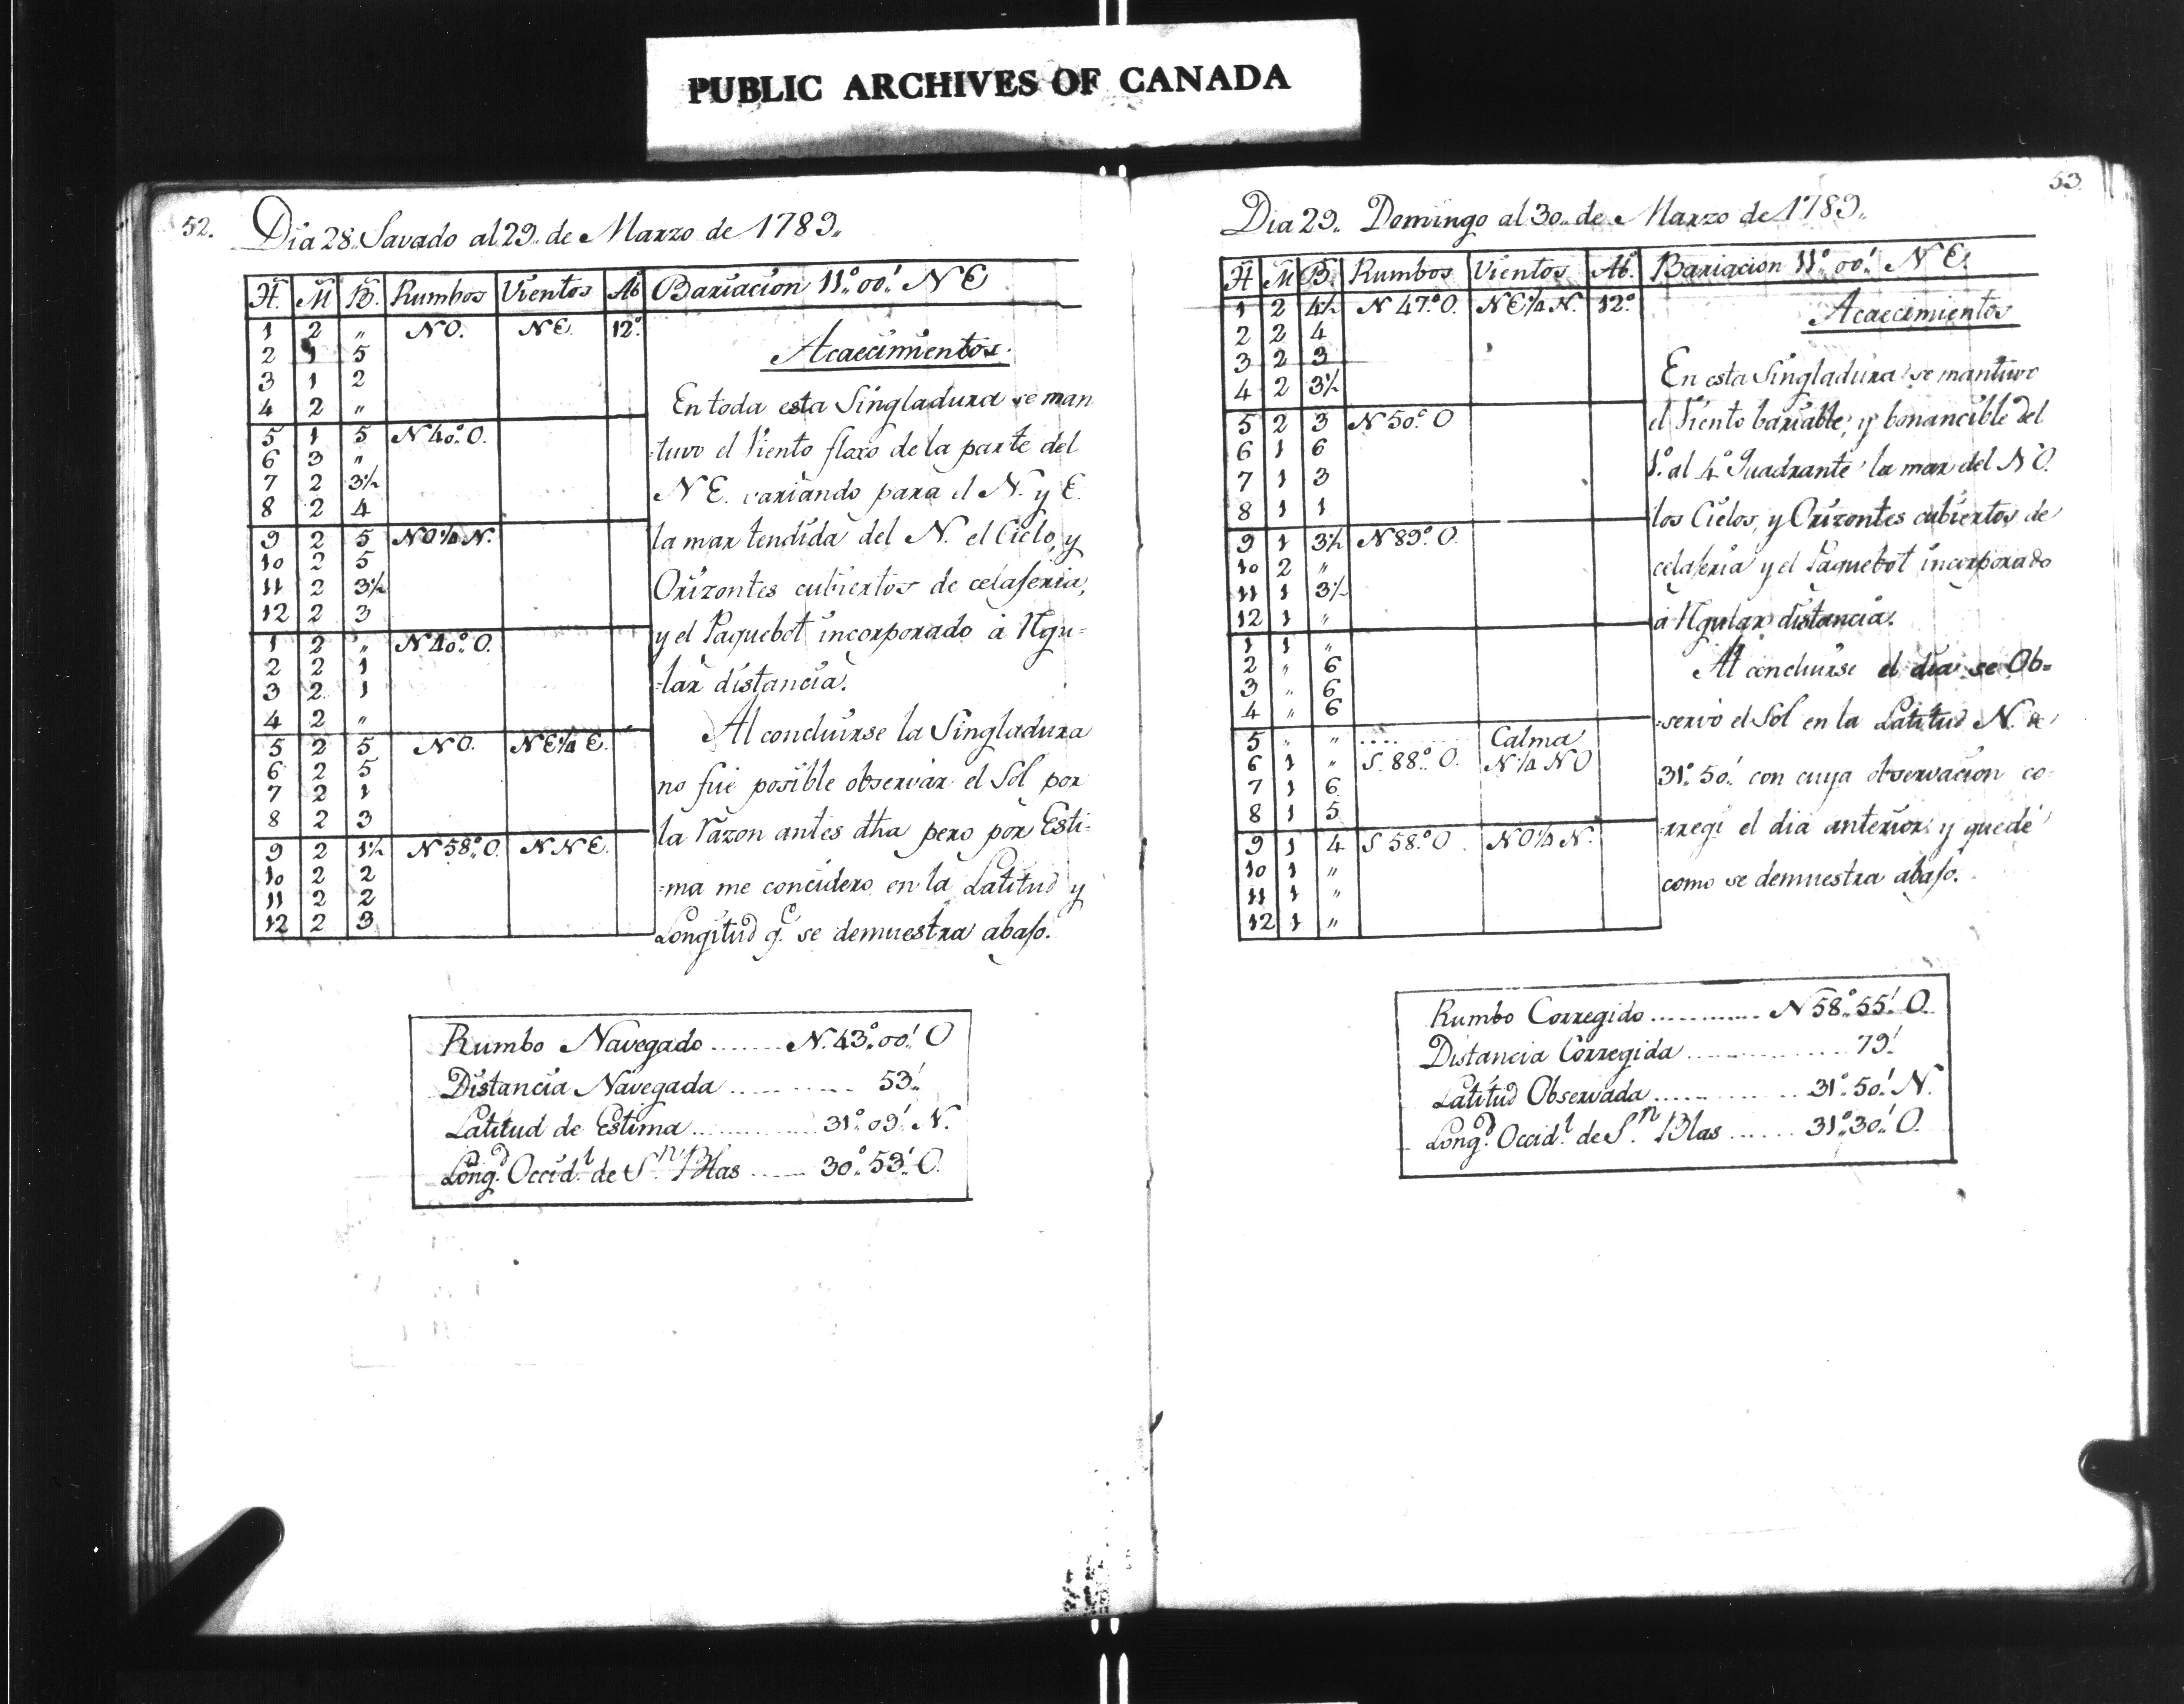 PUBLIC ARCHIVES OF CANADA
52.
Dia 28,, Savado al 29,, de Marzo de 1789,,
H. M B. Rumbos Vientos Ab Bariacion 11°,, 00' N E
1 2 ,, N O. N E. 12°
2 1 5
3 1 2
4 2 ,,
5 1 5 N 40°,, O.
6 3 ,,
7 2 3½
8 2 4
9 2 5 N O ¼ N.
10 2 5
11 2 3½
12 2 3
1 2 ,, N 40°,, O.
2 2 1
3 2 1
4 2 ,,
5 2 5 N O. N E ¼ E.
6 2 5
7 2 1
8 2 3
9 2 1½ N 58°,, O. N N E.
10 2 2
11 2 2
12 2 3
Acaecimientos.
En toda esta Singladura se man
-tuvo el Viento flaxo de la parte del
N E. variando para el N. y E.
la mar tendida del N. el Cielo, y
Orizontes cubiertos de celaferia,
y el Paquebot incorporado à Rgu=
-lar distancia.
Al concluirse la Singladura
no fué posible observar el Sol por
la razon antes dha pero por Esti-
-ma me concidero en la Latitud y
Longitud q.e se demuestra abaso.
Rumbo Navegado ....... N. 43°,, 00' O
Distancia Navegada .......... 53'
Latitud de Estima ............ 31°,, 09' N.
Long.d Occid.l de S.n Blas ..... 30°,, 53' O.
53
Dia 29,, Domingo al 30,, de Marzo de 1789,,
H M B. Rumbos Vientos Ab. Bariacion 11°,, 00' N E.
1 2 4½ N 47°,, O. N E ¼ N. 12°
2 2 4
3 2 3
4 2 3½
5 2 3 N 50°,, O
6 1 6
7 1 3
8 1 1
9 1 3½ N 89°,, O.
10 2 ,,
11 1 3½
12 1 ,,
1 1 ,,
2 ,, 6
3 ,, 6
4 ,, 6
5 ,, ,, ............ Calma
6 1 ,, S. 88°,, O. N ¼ N O
7 1 6
8 1 5
9 1 4 S 58°,, O. N O ¼ N.
10 1 ,,
11 1 ,,
12 1 ,,
Acaecimientos
En esta Singladura se mantuvo
el Viento bariable, y bonancible del
1° al 4° Quadrante la mar del N O.
los Cielos, y Orizontes cubiertos de
celaferia y el Paquebot incorporado
à Rgular distancia.
Al concluirse el dia se Ob=
-servò el Sol en la Latitud N. de
31°,, 50' con cuya observacion co-
-rregi el dia anterior y quedé
como se demuestra abaso.
Rumbo Corregido ............ N 58°,, 55' O.
Distancia Corregida ................. 79'
Latitud Observada ............... 31°,, 50' N.
Long.d Occid.l de S.n Blas ...... 31°,, 30' O.